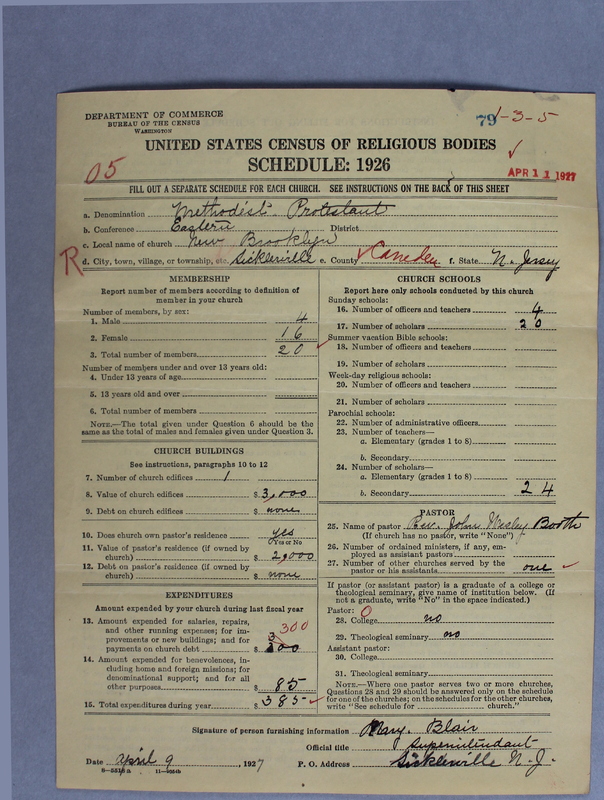 DEPARTMENT OF COMMERCE
BUREAU OF THE CENSUS
WASHINGTON
79 1-3-5
UNITED STATES CENSUS OF RELIGIOUS BODIES
SCHEDULE: 1926
05
APR 11 1927
FILL OUT A SEPARATE SCHEDULE FOR EACH CHURCH. SEE INSTRUCTIONS ON THE BACK OF THIS SHEET
a. Denomination Methodist Protestant
b. Conference Eastern District
c. Local name of church New Brooklyn
R d. City, town, village, or township, etc. Sicklerville e. County Camden f. State N. Jersey
MEMBERSHIP
Report number of members according to definition of
member in your church
Number of members, by sex:
1. Male 4
2. Female 16
3. Total number of members 20
Number of members under and over 13 years old:
4. Under 13 years of age
5. 13 years old and over
6. Total number of members
NOTE.—The total given under Question 6 should be the
same as the total of males and females given under Question 3.
CHURCH BUILDINGS
See instructions, paragraphs 10 to 12
7. Number of church edifices 1
8. Value of church edifices $ 3,000
9. Debt on church edifices $ none
10. Does church own pastor's residence yes
(Yes or No)
11. Value of pastor's residence (if owned by
church) $ 2,000
12. Debt on pastor's residence (if owned by
church) $ none
EXPENDITURES
Amount expended by your church during last fiscal year
13. Amount expended for salaries, repairs,
and other running expenses; for im-
provements or new buildings; and for
payments on church debt $ 300
300
14. Amount expended for benevolences, in-
cluding home and foreign missions; for
denominational support; and for all
other purposes $ 85
15. Total expenditures during year $ 385
CHURCH SCHOOLS
Report here only schools conducted by this church
Sunday schools:
16. Number of officers and teachers 4
17. Number of scholars 20
Summer vacation Bible schools:
18. Number of officers and teachers
19. Number of scholars
Week-day religious schools:
20. Number of officers and teachers
21. Number of scholars
Parochial schools:
22. Number of administrative officers
23. Number of teachers—
a. Elementary (grades 1 to 8)
b. Secondary
24. Number of scholars—
a. Elementary (grades 1 to 8)
b. Secondary 24
PASTOR
25. Name of pastor Rev. John Wesley Booth
(If church has no pastor, write "None")
26. Number of ordained ministers, if any, em-
ployed as assistant pastors
27. Number of other churches served by the
pastor or his assistants one
If pastor (or assistant pastor) is a graduate of a college or
theological seminary, give name of institution below. (If
not a graduate, write "No" in the space indicated.)
Pastor: O
28. College no
29. Theological seminary no
Assistant pastor:
30. College
31. Theological seminary
NOTE.—Where one pastor serves two or more churches,
Questions 28 and 29 should be answered only on the schedule
for one of the churches; on the schedules for the other churches,
write "See schedule for church."
Signature of person furnishing information Mary Blair
Official title Superintendant
Date April 9, 1927 P. O. Address Sicklerville N. J.